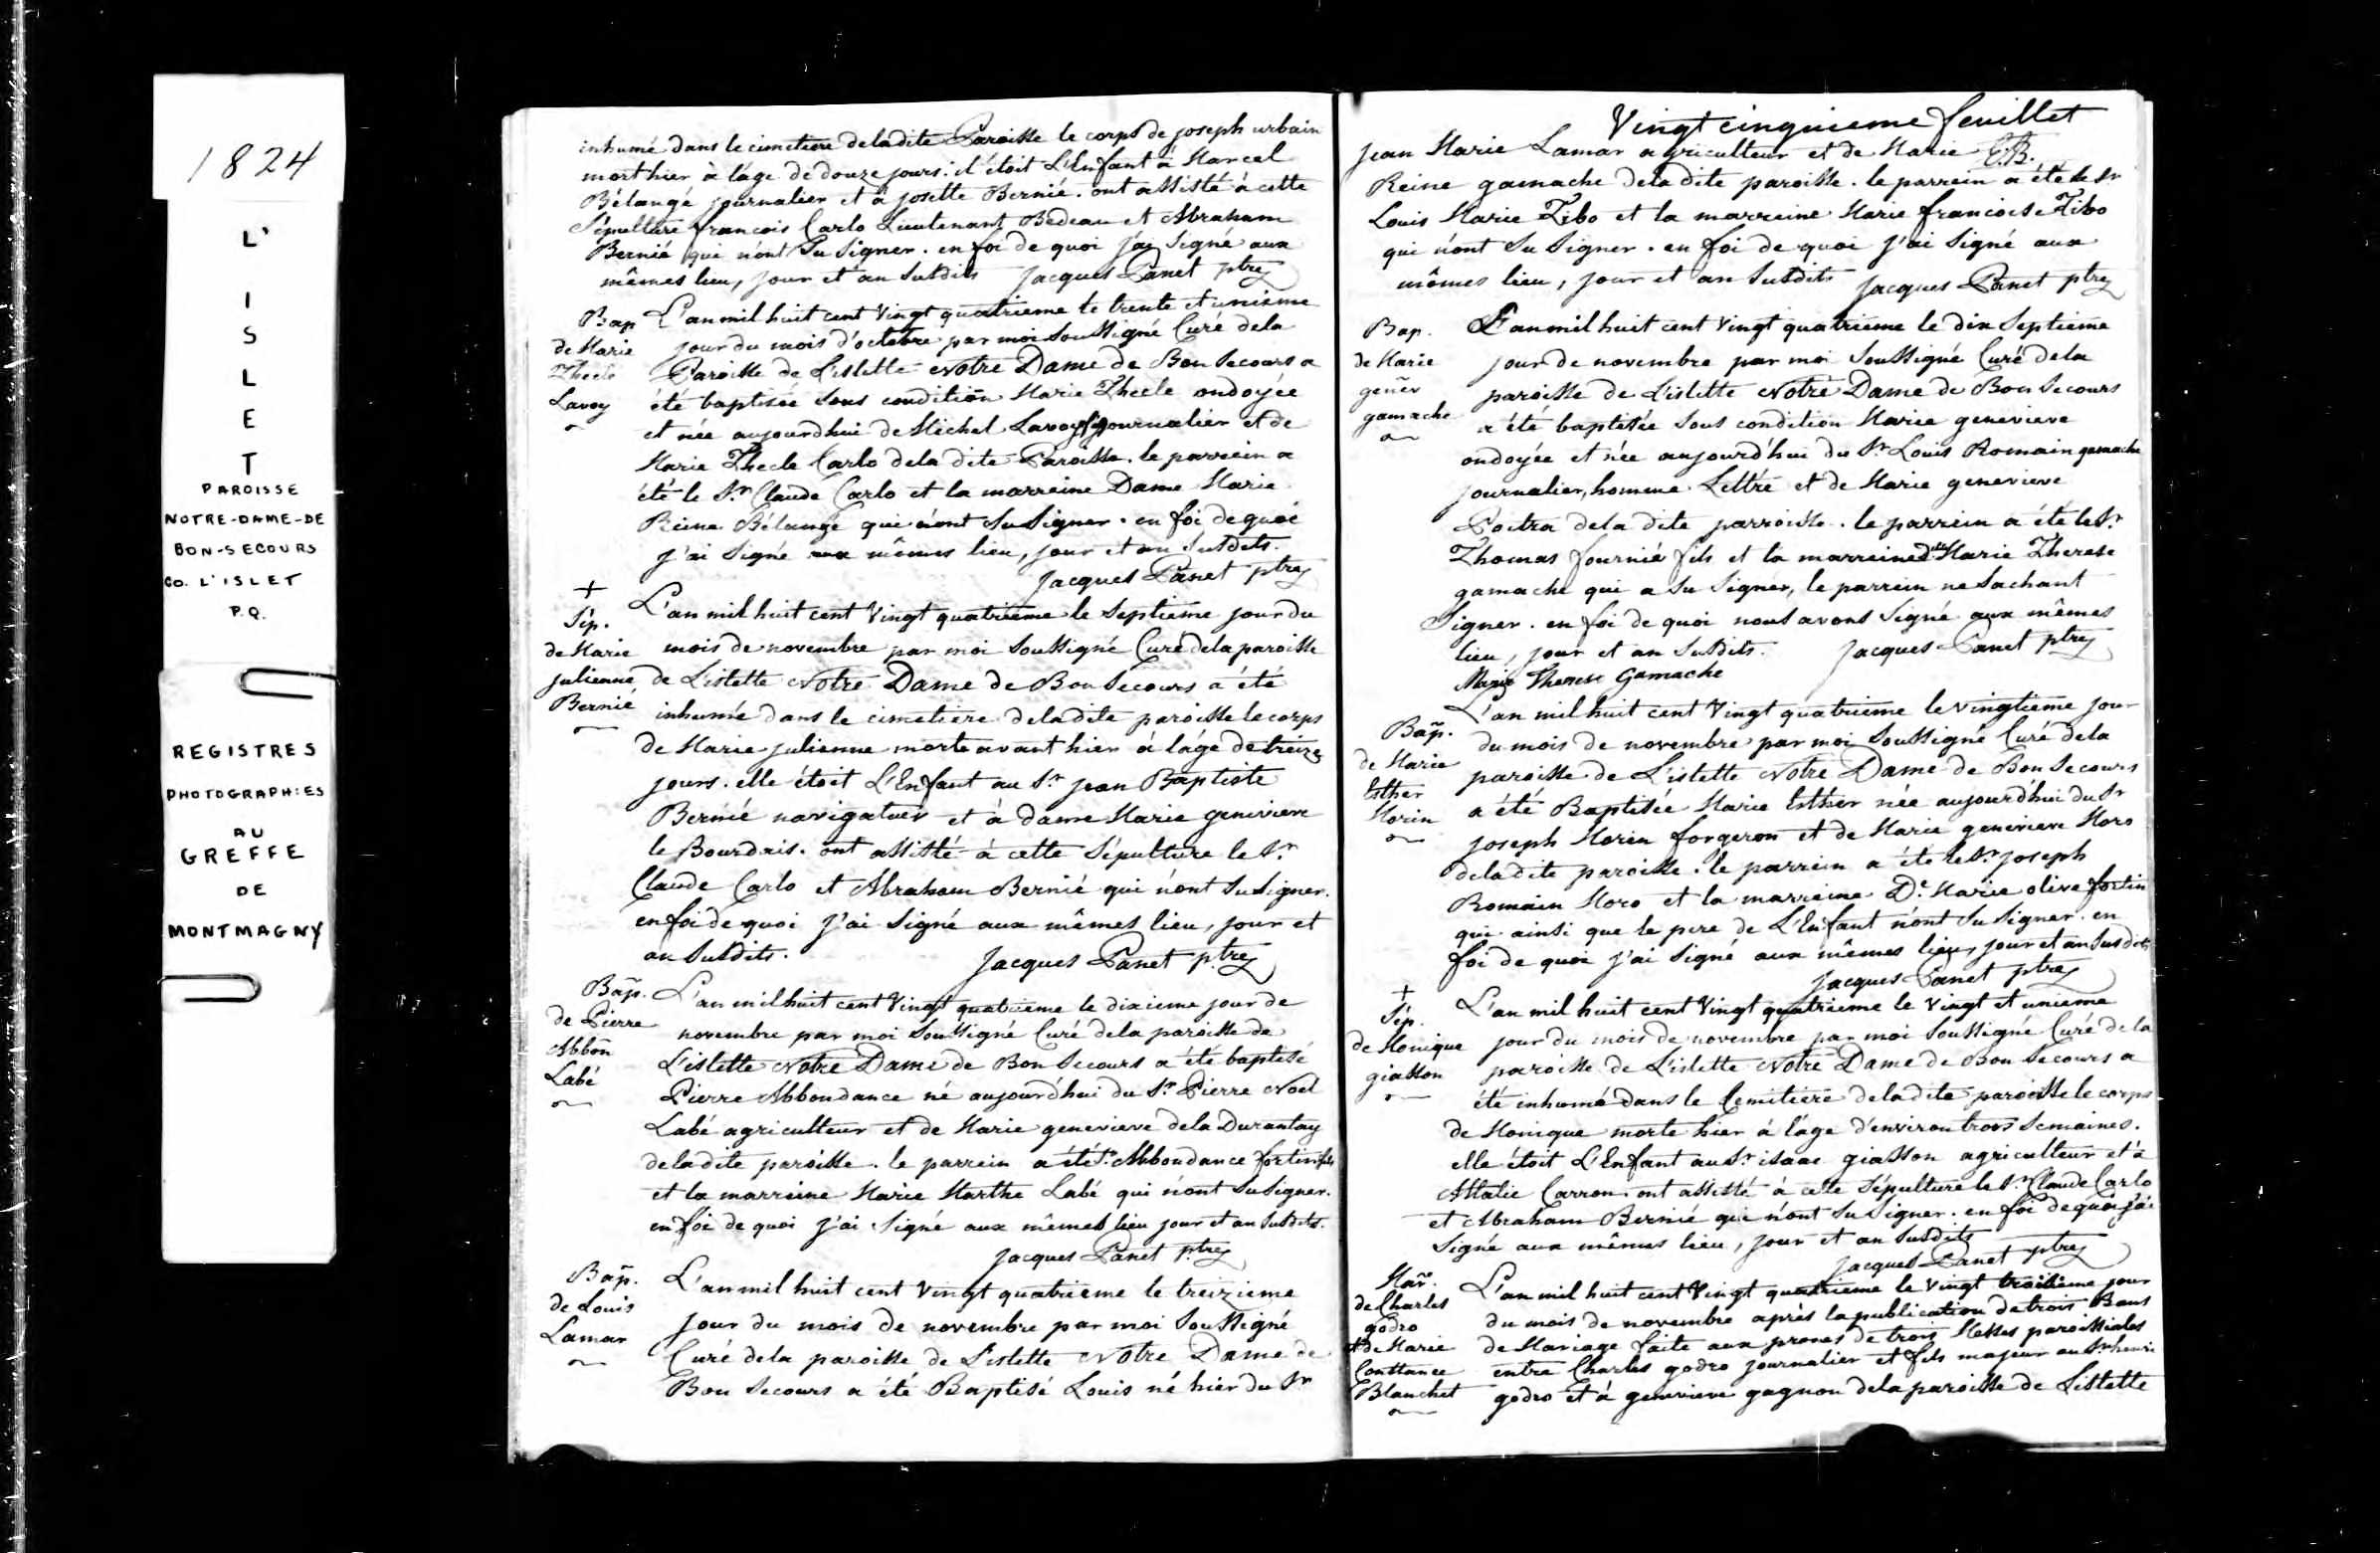 1824
L'
I
S
L
E
T
PAROISSE
NOTRE-DAME-DE
BON-SECOURS
Co. L'ISLET
P.Q.
REGISTRES
PHOTOGRAPHIES
AU
GREFFE
DE
MONTMAGNY
inhumé dans le cimetiere deladite Paroisse le corps de joseph urbain
mort hier à l'âge de douze jours. il étoit L'Enfant à Marcel
Bélangé journalier et à josette Bernié. ont assisté à cette
Sépulture francois Carlo Lieutenant Bedeau et Abraham
Bernié qui n'ont Su Signer. en foi de quoi j'ai Signé aux
mêmes lieu, jour et an Susdits Jacques Panet ptre
Bap
de Marie
Thecle
Lavoy
L'an mil huit cent Vingt quatrieme le trente et unieme
jour du mois d'octobre par moi Soussigné Curé dela
Paroisse de L'islette Notre Dame de Bon Secours a
été baptisée Sous condition Marie Thecle ondoyée
et née aujourdhui de Michel Lavoy journalier et de
Marie Thecle Carlo dela dite Paroisse. le parrein a
été le Sr Claude Carlo et la marreine Dame Marie
Reine Bélangé qui n'ont Su Signer. en foi de quoi
j'ai Signé aux mêmes lieu, jour et an Susdits.
Jacques Panet ptre
+
Sép.
de Marie
julienne
Bernié
L'an mil huit cent Vingt quatrieme le Septieme jour du
mois de novembre par moi Soussigné Curé dela paroisse
de L'islette Notre Dame de Bon Secours a été
inhumée dans le cimetiere deladite paroisse le corps
de Marie julienne morte avant hier à l'âge de treize
jours. elle étoit L'Enfant au Sr jean Baptiste
Bernié navigateur et à dame Marie genevieve
le Bourdais. ont assisté à cette Sépulture le Sr
Claude Carlo et Abraham Bernié qui n'ont Su Signer.
en foi de quoi j'ai Signé aux mêmes lieu, jour et
an Susdits. Jacques Panet ptre
Bap̃.
de Pierre
Abbon
Labé
L'an mil huit cent Vingt quatrieme le dixieme jour de
novembre par moi Soussigné Curé dela paroisse de
L'islette Notre Dame de Bon Secours a été baptisé
Pierre Abbondance né aujourd'hui du Sr Pierre Noel
Labé agriculteur et de Marie genevieve dela Durantay
deladite paroisse. le parrein a été Sr Abbondance fortin fils
et la marreine Marie Marthe Labé qui n'ont Su Signer.
en foi de quoi j'ai Signé aux mêmes lieu jour et an Susdits.
Jacques Panet ptre
Bap̃.
de Louis
Lamar
L'an mil huit cent Vingt quatrieme le treizieme
jour du mois de novembre par moi Soussigné
Curé dela paroisse de L'islette Notre Dame de
Bon Secours a été Baptisé Louis né hier du Sr
Vingt cinquieme feuillet
E.B.
jean Marie Lamar agriculteur et de Marie
Reine gamache dela dite paroisse. le parrein a été le Sr
Louis Marie Zibo et la marreine Marie francoise Zibo
qui n'ont Su Signer. en foi de quoi j'ai Signé aux
mêmes lieu, jour et an Susdits Jacques Panet ptre
Bap.
de Marie
geñev
gamache
L'an mil huit cent Vingt quatrieme le dix Septieme
jour de novembre par moi Soussigné Curé dela
paroisse de L'islette Notre Dame de Bon Secours
a été baptisée Sous condition Marie genevieve
ondoyée et née aujourd'hui du Sr Louis Romain gamache
journalier, homme Lettré et de Marie genevieve
Poitra dela dite parroisse. le parrein a été le Sr
Thomas fournié fils et la marreine dlle Marie Therese
gamache qui a Su Signer, le parrein ne Sachant
Signer. en foi de quoi nous avons Signé aux mêmes
lieu, jour et an Susdits. Jacques Panet ptre
Marie Therese Gamache
Bap̃.
de Marie
Esther
Morin
L'an mil huit cent Vingt quatrieme le vingtieme jour
du mois de novembre par moi Soussigné Curé dela
paroisse de L'islette Notre Dame de Bon Secours
a été Baptisée Marie Esther née aujourd'hui du Sr
joseph Morin forgeron et de Marie genevieve Moro
deladite paroisse. le parrein a été le Sr joseph
Romain Moro et la marreine De Marie olive fortin
qui ainsi que le pere de L'Enfant n'ont Su Signer. en
foi de quoi j'ai Signé aux mêmes lieu, jour et an Susdits
Jacques Panet ptre
+
Sép.
de Monique
giasson
L'an mil huit cent Vingt quatrieme le Vingt et unieme
jour du mois de novembre par moi Soussigné Curé de la
paroisse de L'islette Notre Dame de Bon Secours a
été inhumé dans le Cemitiere deladite paroisse le corps
de Monique morte hier à l'âge d'environ trois Semaines.
elle étoit L'Enfant au Sr isaac giasson agriculteur et à
Attalie Carron. ont assisté à cette Sépulture le Sr Claude Carlo
et Abraham Bernié qui n'ont Su Signer. en foi de quoi j'ai
Signé aux mêmes lieu, jour et an Susdits
Jacques Panet ptre
Mar̃.
de Charles
godro
et de Marie
Constance
Blanchet
L'an mil huit cent Vingt quatrieme le Vingt troisieme jour
du mois de novembre après la publication de trois Bans
de Mariage faite aux prones de trois Messes paroissiales
entre Charles godro journalier et fils majeur au Sr henri
godro et à genevieve gagnon dela paroisse de L'islette